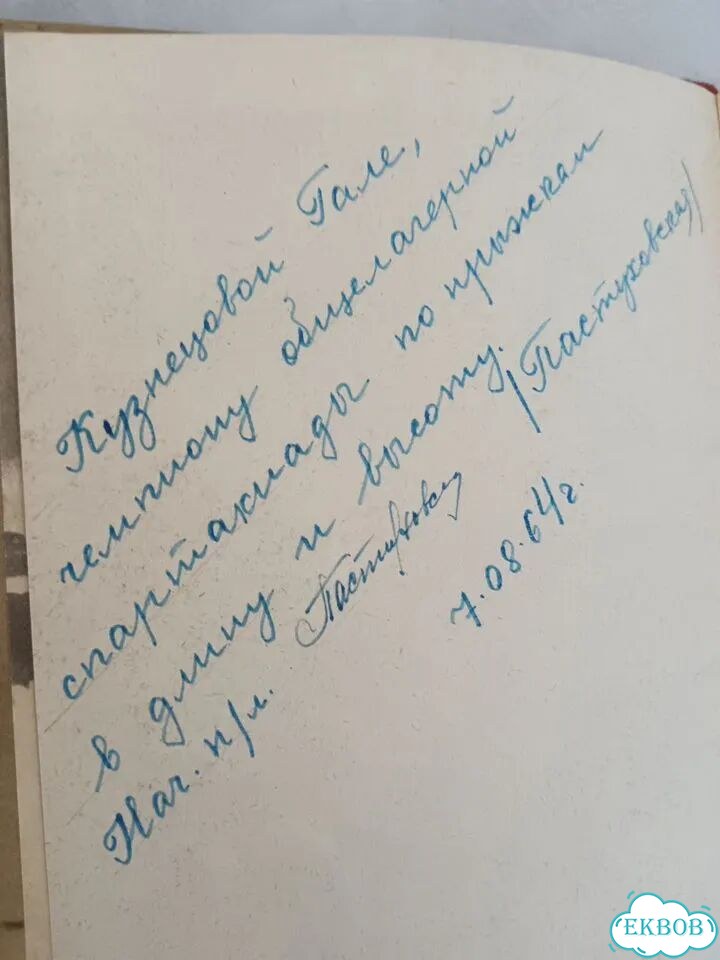 Кузнецовой Гале,
чемпиону общелагерной
спартакиады по прыжкам
в длину и высоту.
Нач. п/л. Пастуховск /Пастуховская/
7.08.64г.
EKBOB